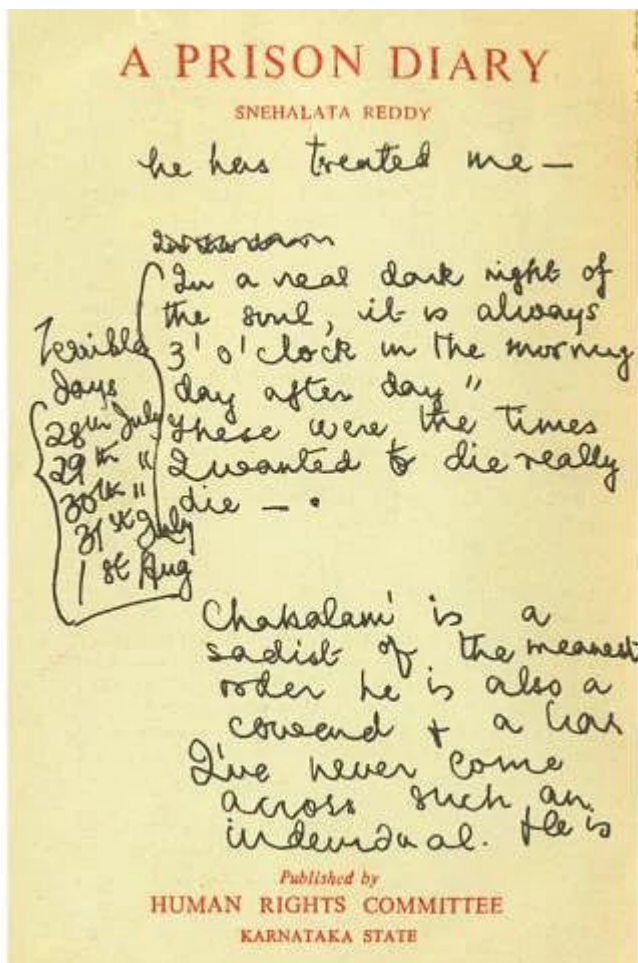 A PRISON DIARY
SNEHALATA REDDY
he has treated me —
In a real dark night of
the soul, it is always
3' o' clock in the morning
day after day "
these were the times
I wanted to die really
die — .
Terrible
days
28th July
29th "
30th "
31st July
1st Aug
Chakalani is a
sadist of the meanest
order he is also a
coward + a liar
I've never come
across such an
individual. He is
Published by
HUMAN RIGHTS COMMITTEE
KARNATAKA STATE